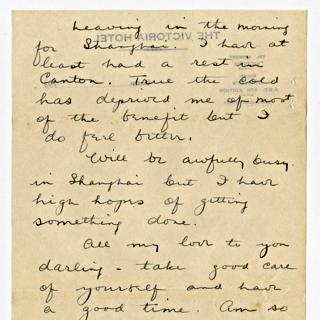 Leaving in the morning
for Shanghai. I have at
least had a rest in
Canton. True the cold
has deprived me of most
of the benefit but I
do feel better.
Will be awfully busy
in Shanghai but I have
high hopes of getting
something done.
All my love to you
darling - take good care
of yourself and have
a good time. Am so
THE VICTORIA HOTEL